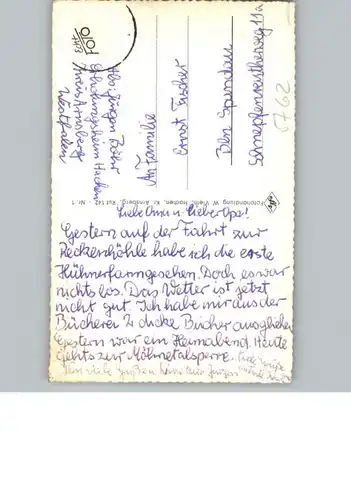 Liebe Oma u. Lieber Opa!
Gestern auf der Fahrt zur
Reckenhöhle habe ich die erste
Hühnerfarm gesehen. Doch es war
nichts los. Das Wetter ist jetzt
nicht gut. Ich habe mir aus der
Bücherei 2 dicke Bücher ausgliehen
Gestern war ein Heimabend. Heute
gehts zur Möhnetalsperre.
Abs: Jürgen
Erholungsheim Hachen
Kreis Arnsberg
Westfalen
An Familie
Ernst Fischer
Bln Spandau
11a
Echt
Foto
Fotohandlung W. Hachen, Kr. Arnsberg, Ruf 142 - Nr. 1
762